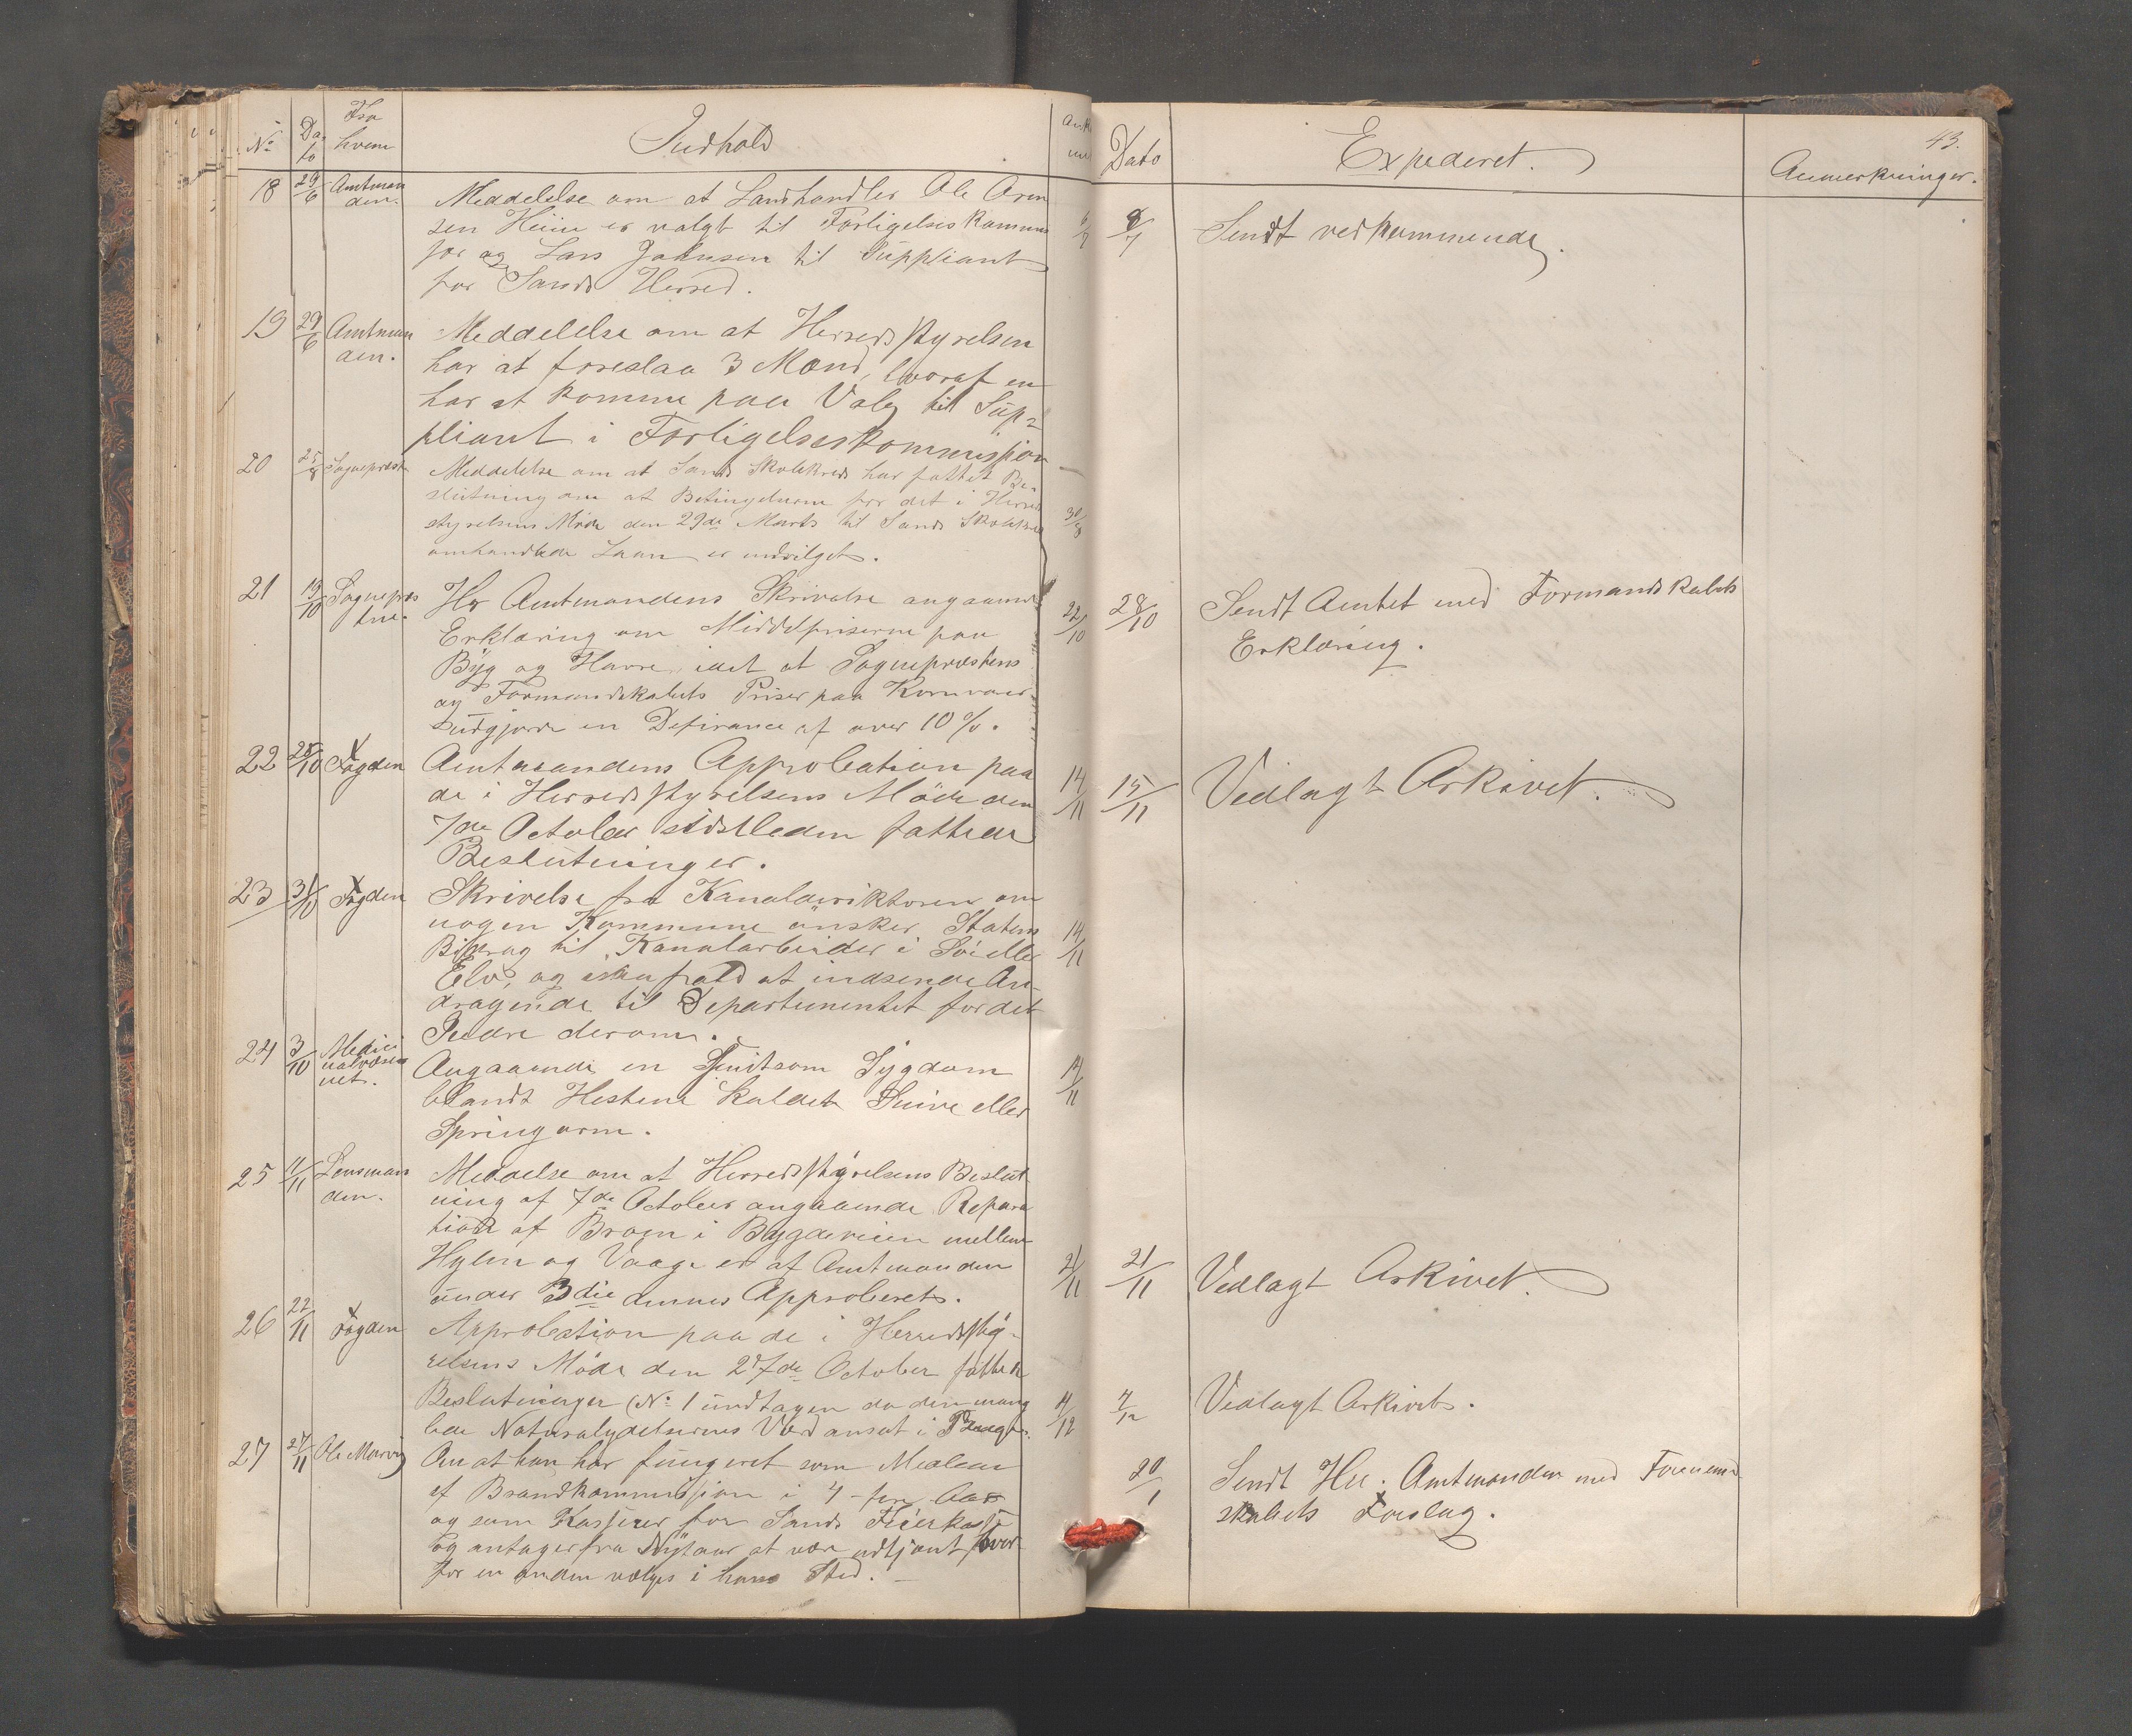 No Dato Fra hvem Indhold Ank
Dato Expederet. Anmerkninger. 43.
18 29/6 Amtmanden. Meddelelse om at Landhandler Ole Aren
sen Heim er valgt til Forligelseskommis 6/7 8/7 Sendt vedkommende.
sør og Lars Johnsen til Suppliant
for Sands Herred.
19 29/6 Amtmanden. Meddelelse om at Herredsstyrelsen
har at foreslaa 3 Mænd, hvoraf en
har at komme paa Valg til Sup=
pliant i Forligelseskommissjon
20 25/8 Sognepræst Meddelelse om at Sands Skolekreds har fattet Be-
slutning om at Betingelserne for det i Herreds
styrelsens Møde den 29de Marts til Sands Skolekreds 30/8
omhandlede Laan er indvilget.
21 19/10 Sognepræsten. Hr Amtmandens Skrivelse angaaende
Erklæring om Middelpriserne paa 22/10 28/10 Sendt Amtet med Formandskabets
Byg og Havre, idet at Sognepræstens Erklæring.
og Formandskabets Priser paa Kornvarer
udgjorde en Defirance af over 10 %.
22 28/10 Fogden Amtmandens Approbation paa
de i Herredsstyrelsens Møde den 14/11 15/11 Vedlagt Arkivet.
7de October sidstleden fattede
Beslutninger.
23 31/10 Fogden Skrivelse fra Kanaldirektoren om
nogen Kommune ønsker Statens 14/11
Bidrag til Kanalarbeider i Sø eller
Elv, og isaafald at indsende An-
dragende til Departementet for det
Indre derom.
24 3/10 Medicinalvæsenet. Angaaende en Smitsom Sygdom 14/11
blandt Hestene kaldet Snive eller
Springorm.
25 11/11 Lensmanden. Meddelse om at Herredsstyrelsens Beslut
ning af 7de October angaaende Repara
tion af Broen i Bygdeveien mellem
Hylen og Vaage er af Amtmanden 21/11 21/11 Vedlagt Arkivet.
under 3die dennes Approberet.
26 22/11 Fogden Approbation paa de i Herredssty-
relsens Møde den 27de October fattede
Beslutninger (No 1 undtagen da den mang 4/12 4/12 Vedlagt Arkivet.
lede Naturalydelsernes Værd ansat i Penge.
27 27/11 Ole Marvig Om at han har fungeret som Medlem
af Brandkommissjon i 4 fire Aar 20/1 Sendt Hr. Amtmanden med Formand
og som Kasserer for Sands skabets Forslag.
og antager fra Nytaar at være udtjent hvor
for en anden vælges i hans Sted.